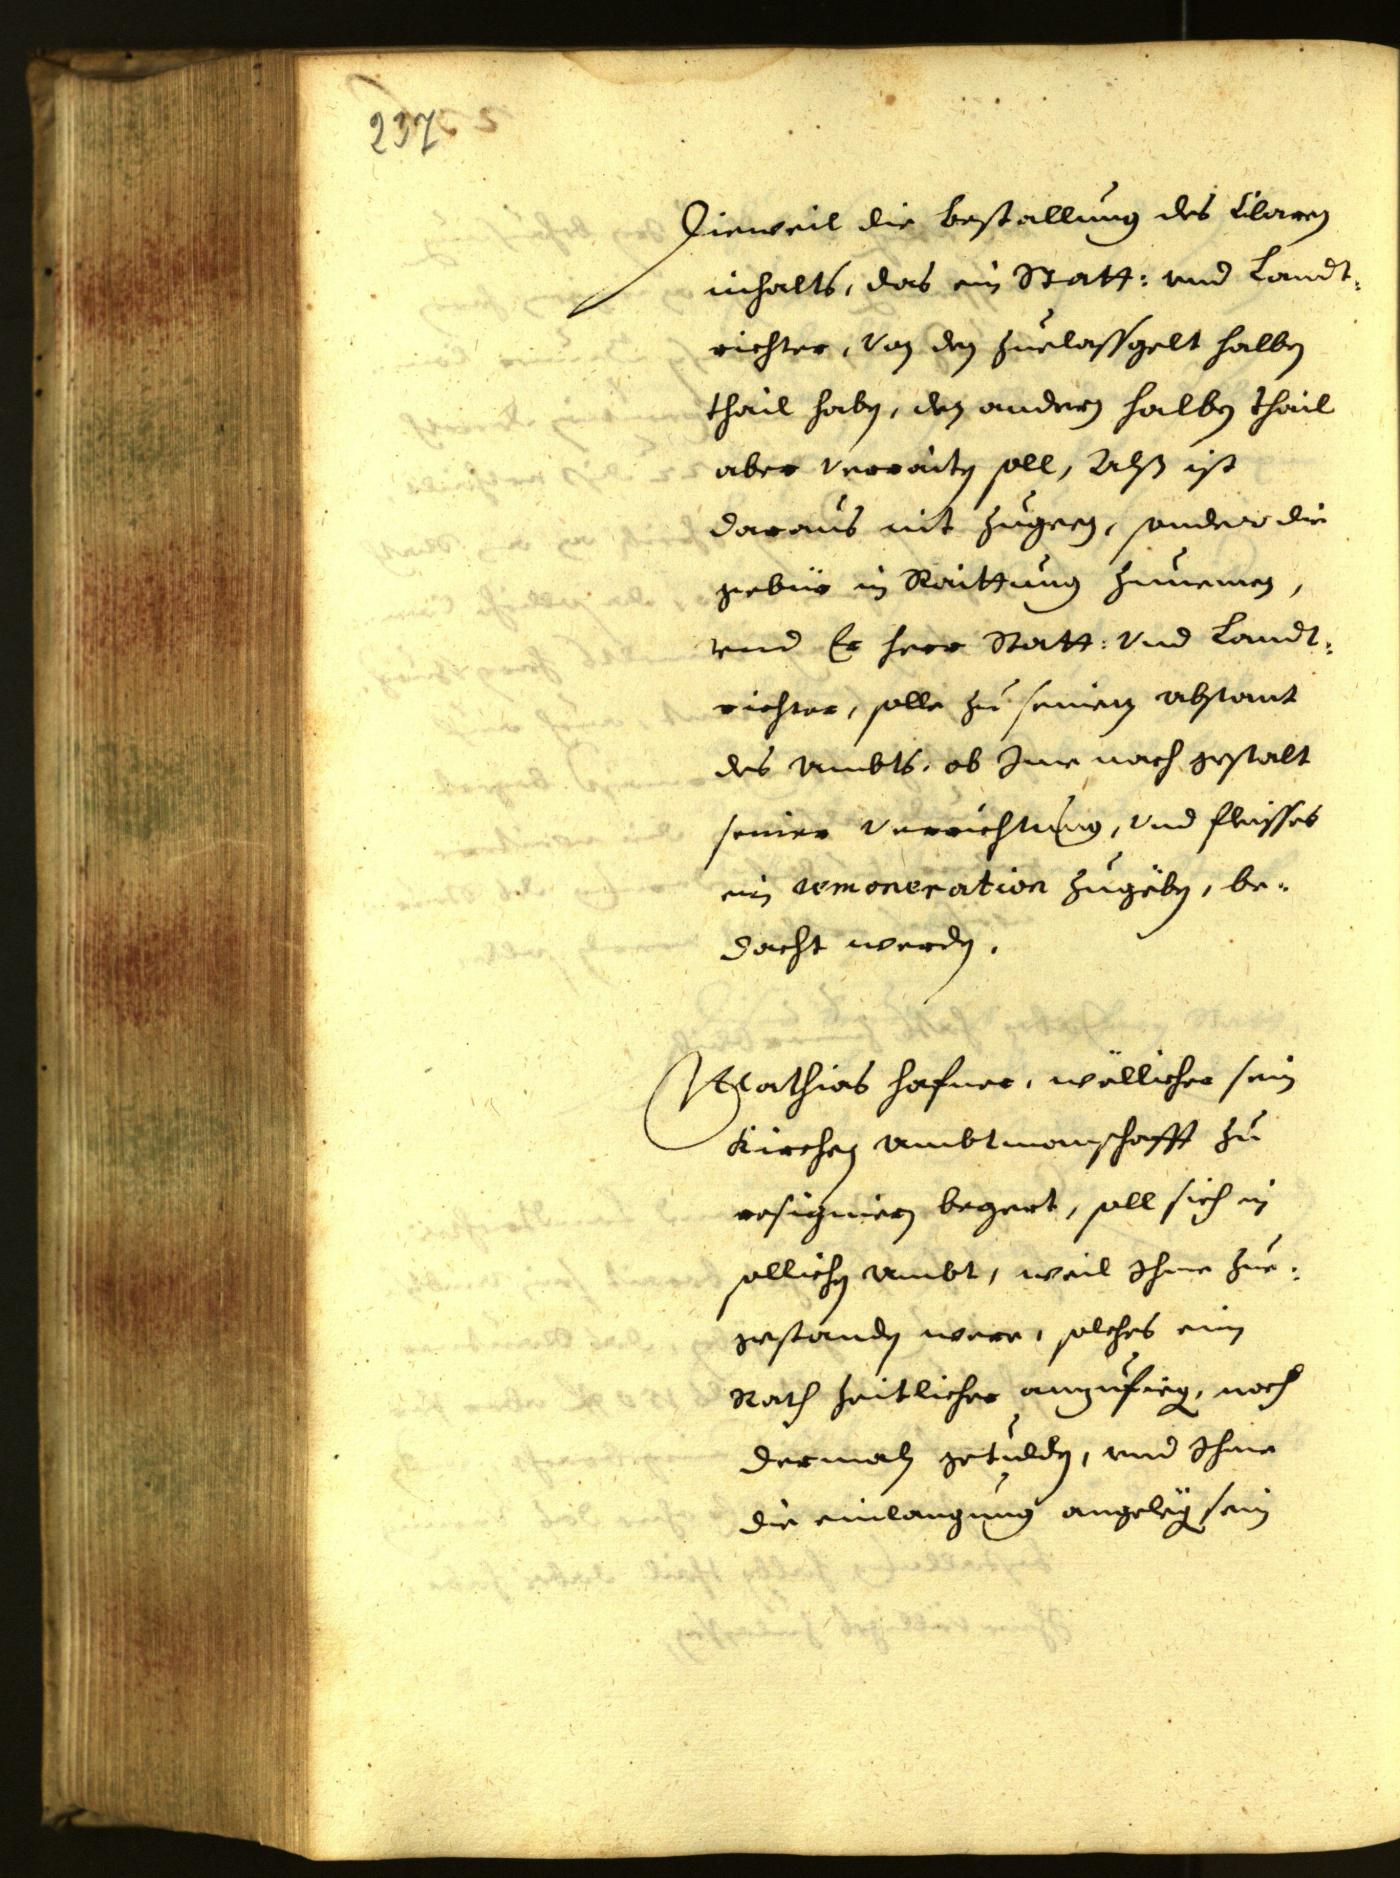 237
Dieweil die bestallung des Claren
inhalts, das ein Statt: vnd Landt-
richter, von den Zuelassgelt halben
thail haben, den andern halben thail
aber verraiten soll, Alß ist
daraus nit zugeen, sonder die
gebür in Raittung zunemen,
vnd Er herr Statt: vnd Landt-
richter, solle zu seinem abstant
des Ambts, ob Ime nach gestalt
seiner verrichtung, vnd fleisses
ein remoneration zugeben, be-
dacht werden.
Mathias Hafner, wöllicher sein
Kirchen Ambtmanschafft zu
resigniern begert, soll sich in
sollichen Ambt, weil Ihme zue-
gestanden were, solches eim
Rath zeitlicher anzufiegen, noch
dermaln getulden, vnd Ihme
die einlangung angelegen sein